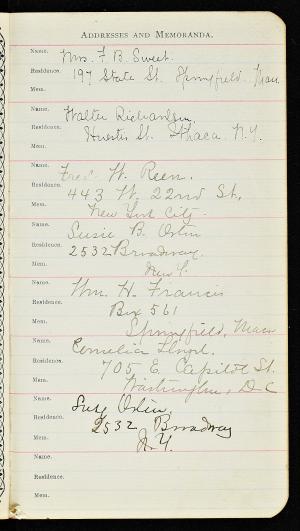 ADDRESSES AND MEMORANDA.
Name. Mrs. F. B. Sweet.
Residence. 197 State St. Springfield, Mass.
Mem.
Name. Walter Richardson,
Residence. Huestis St. Ithaca, N.Y.
Mem.
Name. Fred W. Reen.
Residence. 443 W. 22nd St,
Mem. New York City.
Name. Susie B. Ostin
Residence. 2532 Broadway.
Mem. New Y.
Name. Wm. H. Francis
Residence. Box 561
Mem. Springfield, Mass
Name. Cornelia
Residence. 705 E. Capitol St.
Mem. Washington, D.C
Name. Ostin,
Residence. 2532 Broadway
Mem. N.Y.
Name.
Residence.
Mem.